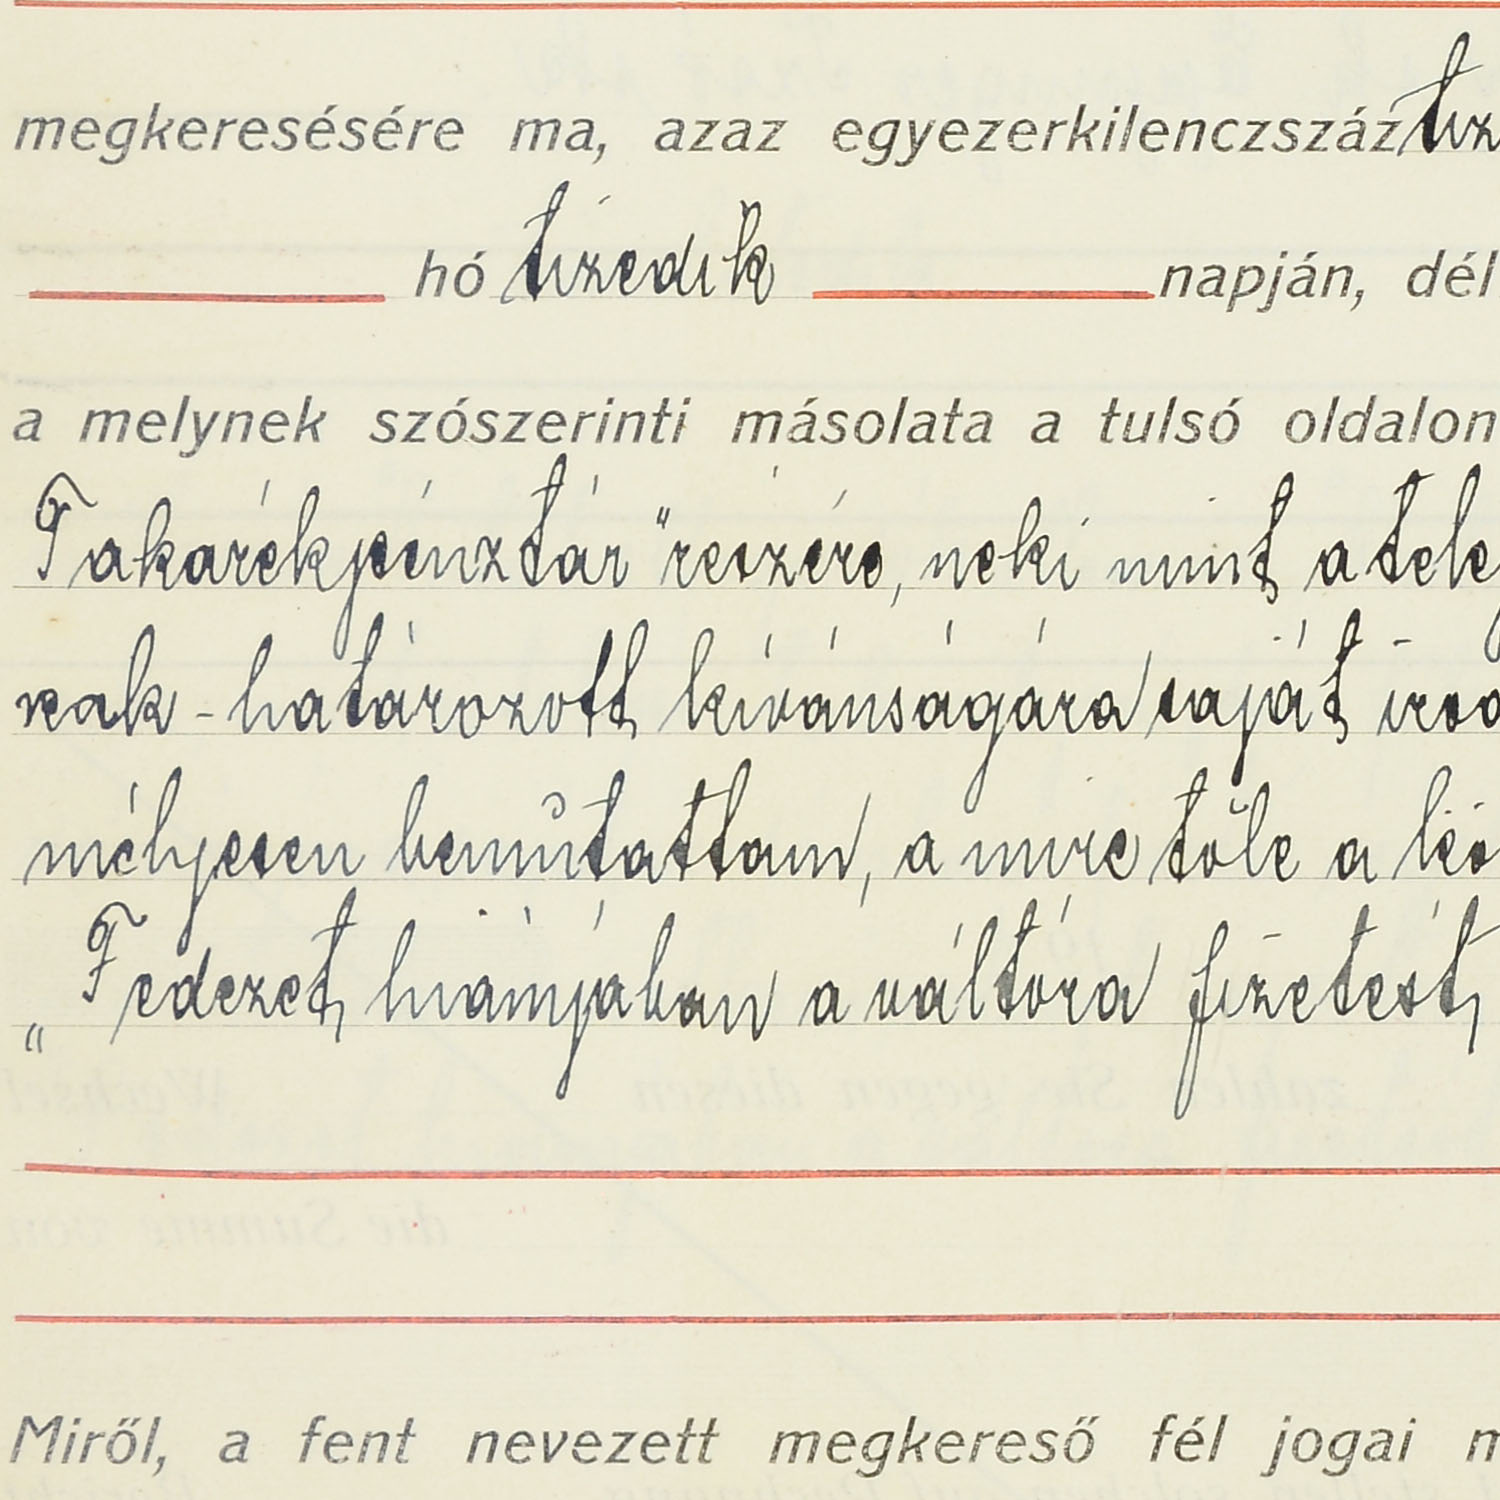 megkeresésére ma, azaz egyezerkilenczszáztiz
hó tizedik napján, dél
a melynek szószerinti másolata a tulsó oldalon
Takarékpénztár" részére, neki mint a tele
nak - határozott kivánságára saját iro
mélyesen bemutattam, a mire tőle a kö
„Fedezet hiányában a váltóra fizetést
Miről, a fent nevezett megkereső fél jogai m